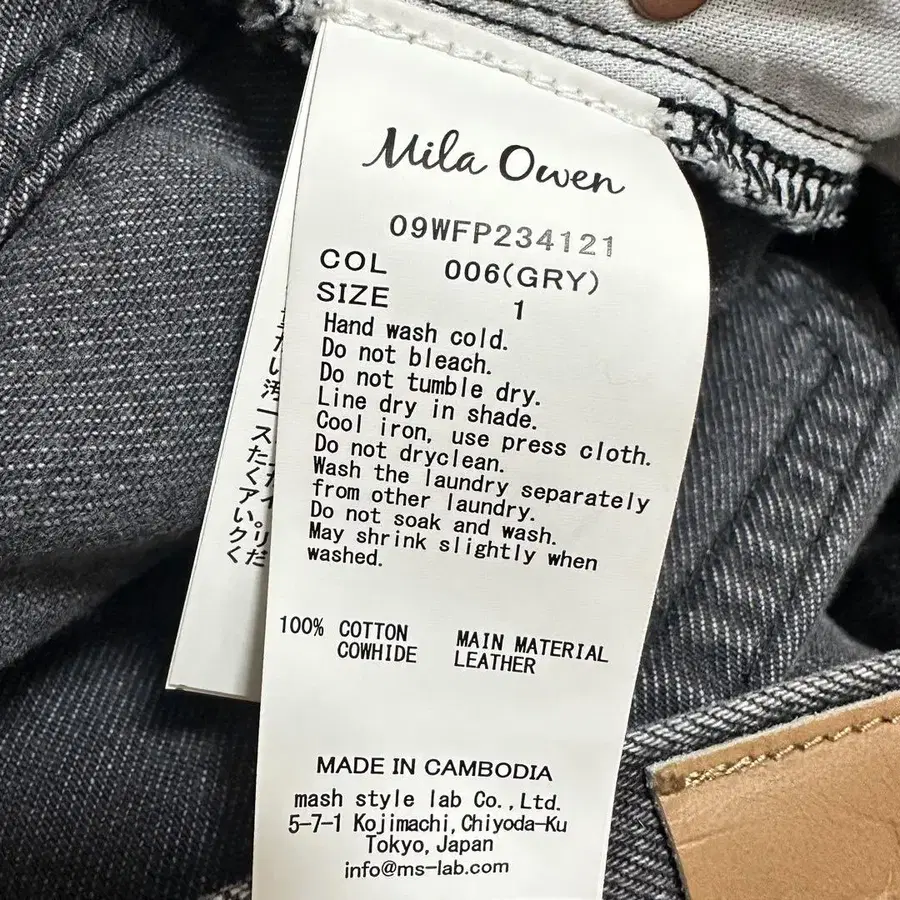 Mila Owen
09WFP234121
COL 006(GRY)
SIZE 1
Hand wash cold.
Do not bleach.
Do not tumble dry.
Line dry in shade.
Cool iron, use press cloth.
Do not dryclean.
Wash the laundry separately
from other laundry.
Do not soak and wash.
May shrink slightly when
washed.
100% COTTON MAIN MATERIAL
COWHIDE LEATHER
MADE IN CAMBODIA
mash style lab Co.,Ltd.
5-7-1 Kojimachi,Chiyoda-Ku
Tokyo,Japan
info@ms-lab.com